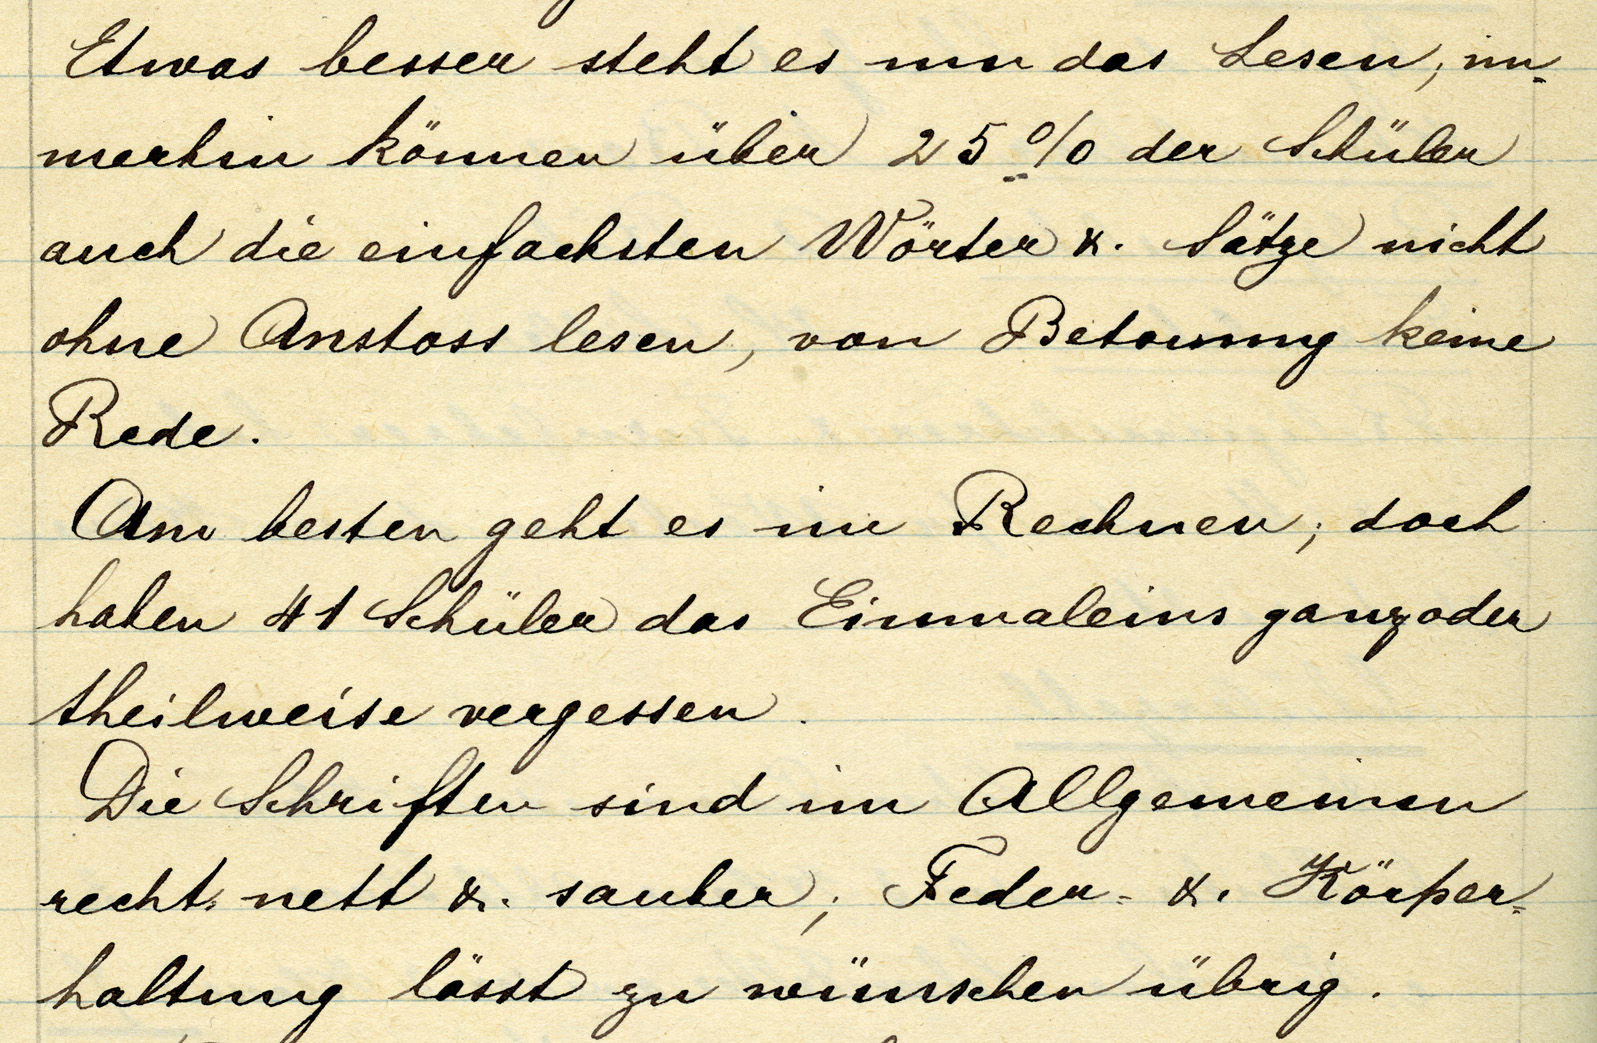 Etwas besser steht es um das Lesen, im-
merhin können über 25 % der Schüler
auch die einfachsten Wörter &. Sätze nicht
ohne Anstoss lesen, von Betonung keine
Rede.
Am besten geht es im Rechnen; doch
haben 41 Schüler das Einmaleins ganz oder
theilweise vergessen.
Die Schriften sind im Allgemeinen
recht nett &. sauber; Feder- &. Körper-
haltung lässt zu wünschen übrig.